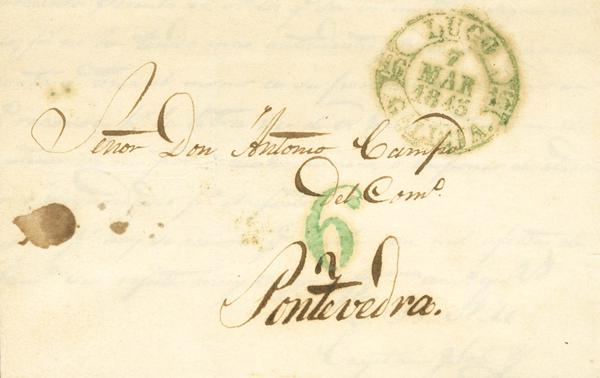 LUGO
7
MAR
1845
GALICIA.
Señor Don Antonio Campo
del Comº.
6
Pontevedra.